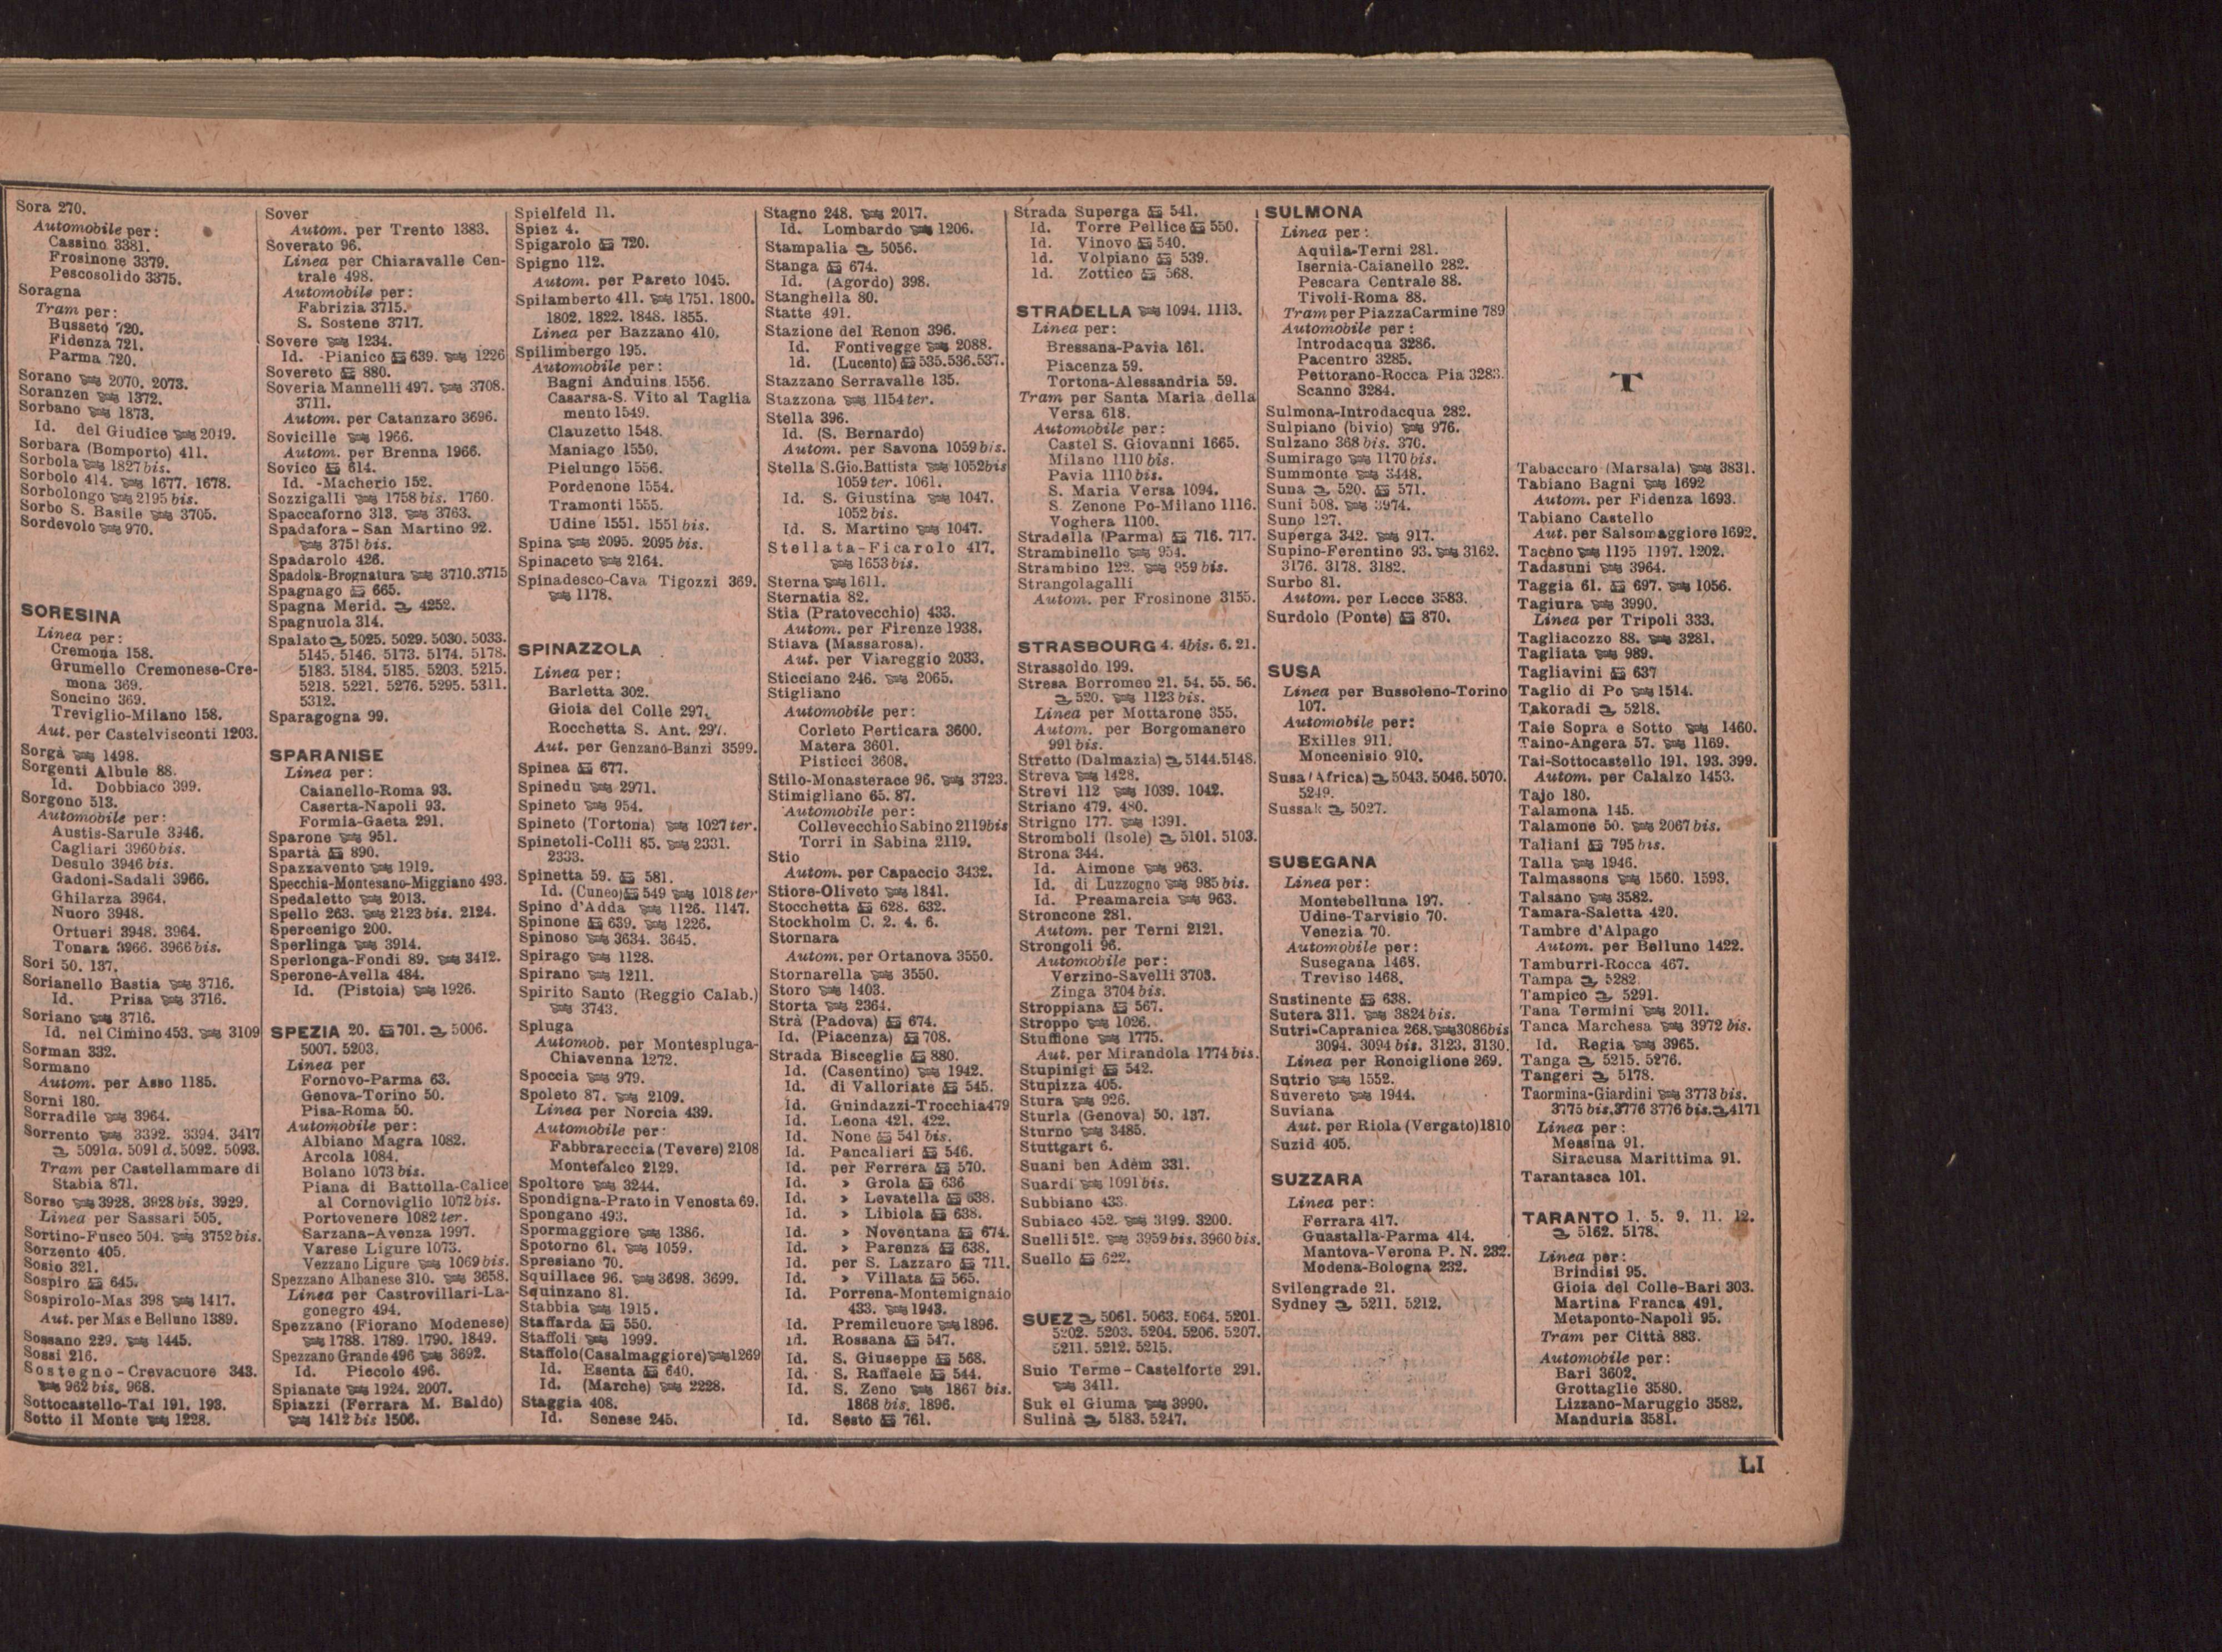 Sora 270.
Automobile per:
Cassino 3381.
Frosinone 3379.
Pescosolido 3375.
Soragna
Tram per:
Busseto 720.
Fidenza 721.
Parma 720.
Sorano 2070. 2073.
Soranzen 1372.
Sorbano 1873.
Id. del Giudice 2049.
Sorbara (Bomporto) 411.
Sorbola 1827 bis.
Sorbolo 414. 1677. 1678.
Sorbolongo 2195 bis.
Sorbo S. Basile 3705.
Sordevolo 970.
SORESINA
Linea per:
Cremona 158.
Grumello Cremonese-Cre-
mona 369.
Soncino 369.
Treviglio-Milano 158.
Aut. per Castelvisconti 1203.
Sorgà 1498.
Sorgenti Albule 88.
Id. Dobbiaco 399.
Sorgono 513.
Automobile per:
Austis-Sarule 3946.
Cagliari 3960 bis.
Desulo 3946 bis.
Gadoni-Sadali 3966.
Ghilarza 3964.
Nuoro 3948.
Ortueri 3948. 3964.
Tonara 3966. 3966 bis.
Sori 50. 137.
Sorianello Bastia 3716.
Id. Prisa 3716.
Soriano 3716.
Id. nel Cimino 453. 3109
Sorman 332.
Sormano
Autom. per Asso 1185.
Sorni 180.
Sorradile 3964.
Sorrento 3392. 3394. 3417
5091a. 5091 d. 5092. 5093.
Tram per Castellammare di
Stabia 871.
Sorso 3928. 3928 bis. 3929.
Linea per Sassari 505.
Sortino-Fusco 504. 3752 bis.
Sorzento 405.
Sosio 321.
Sospiro 645.
Sospirolo-Mas 398 1417.
Aut. per Mas e Belluno 1389.
Sossano 229. 1445.
Sossi 216.
Sostegno-Crevacuore 343.
962 bis. 968.
Sottocastello-Tai 191. 193.
Sotto il Monte 1228.
Sover
Autom. per Trento 1383.
Soverato 96.
Linea per Chiaravalle Cen-
trale 498.
Automobile per:
Fabrizia 3715.
S. Sostene 3717.
Sovere 1234.
Id. -Pianico 639. 1226
Sovereto 880.
Soveria Mannelli 497. 3708.
3711.
Autom. per Catanzaro 3696.
Sovicille 1966.
Autom. per Brenna 1966.
Sovico 614.
Id. -Macherio 152.
Sozzigalli 1758 bis. 1760.
Spaccaforno 313. 3763.
Spadafora-San Martino 92.
3751 bis.
Spadarolo 426.
Spadola-Brognatura 3710.3715
Spagnago 665.
Spagna Merid. 4252.
Spagnuola 314.
Spalato 5025. 5029. 5030. 5033.
5145. 5146. 5173. 5174. 5178.
5183. 5184. 5185. 5203. 5215.
5218. 5221. 5276. 5295. 5311.
5312.
Sparagogna 99.
SPARANISE
Linea per:
Caianello-Roma 93.
Caserta-Napoli 93.
Formia-Gaeta 291.
Sparone 951.
Spartà 890.
Spazzavento 1919.
Specchia-Montesano-Miggiano 493.
Spedaletto 2013.
Spello 263. 2123 bis. 2124.
Spercenigo 200.
Sperlinga 3914.
Sperlonga-Fondi 89. 3412.
Sperone-Avella 484.
Id. (Pistoia) 1926.
SPEZIA 20. 701. 5006.
5007. 5203.
Linea per
Fornovo-Parma 63.
Genova-Torino 50.
Pisa-Roma 50.
Automobile per:
Albiano Magra 1082.
Arcola 1084.
Bolano 1073 bis.
Piana di Battolla-Calice
al Cornoviglio 1072 bis.
Portovenere 1082 ter.
Sarzana-Avenza 1997.
Varese Ligure 1073.
Vezzano Ligure 1069 bis.
Spezzano Albanese 310. 3658.
Linea per Castrovillari-La-
gonegro 494.
Spezzano (Fiorano Modenese)
1788. 1789. 1790. 1849.
Spezzano Grande 496 3692.
Id. Piccolo 496.
Spianate 1924. 2007.
Spiazzi (Ferrara M. Baldo)
1412 bis 1506.
Spielfeld 11.
Spiez 4.
Spigarolo 720.
Spigno 112.
Autom. per Pareto 1045.
Spilamberto 411. 1751. 1800.
1802. 1822. 1848. 1855.
Linea per Bazzano 410.
Spilimbergo 195.
Automobile per:
Bagni Anduins 1556.
Casarsa-S. Vito al Taglia
mento 1549.
Clauzetto 1548.
Maniago 1550.
Pielungo 1556.
Pordenone 1554.
Tramonti 1555.
Udine 1551. 1551 bis.
Spina 2095. 2095 bis.
Spinaceto 2164.
Spinadesco-Cava Tigozzi 369.
1178.
SPINAZZOLA
Linea per:
Barletta 302.
Gioia del Colle 297.
Rocchetta S. Ant. 297.
Aut. per Genzano-Banzi 3599.
Spinea 677.
Spinedu 2971.
Spineto 954.
Spineto (Tortona) 1027 ter.
Spinetoli-Colli 85. 2331.
2333.
Spinetta 59. 581.
Id. (Cuneo) 549 1018 ter
Spino d'Adda 1126. 1147.
Spinone 639. 1226.
Spinoso 3634. 3645.
Spirago 1128.
Spirano 1211.
Spirito Santo (Reggio Calab.)
3743.
Spluga
Automob. per Montespluga-
Chiavenna 1272.
Spoccia 979.
Spoleto 87. 2109.
Linea per Norcia 439.
Automobile per:
Fabbrareccia (Tevere) 2108
Montefalco 2129.
Spoltore 3244.
Spondigna-Prato in Venosta 69.
Spongano 493.
Spormaggiore 1386.
Spotorno 61. 1059.
Spresiano 70.
Squillace 96. 3698. 3699.
Squinzano 81.
Stabbia 1915.
Staffarda 550.
Staffoli 1999.
Staffolo (Casalmaggiore) 1269
Id. Esenta 640.
Id. (Marche) 2228.
Staggia 408.
Id. Senese 245.
Stagno 248. 2017.
Id. Lombardo 1206.
Stampalia 5056.
Stanga 674.
Id. (Agordo) 398.
Stanghella 80.
Statte 491.
Stazione del Renon 396.
Id. Fontivegge 2088.
Id. (Lucento) 535.536.537.
Stazzano Serravalle 135.
Stazzona 1154 ter.
Stella 396.
Id. (S. Bernardo)
Autom. per Savona 1059 bis.
Stella S.Gio.Battista 1052 bis
1059 ter. 1061.
Id. S. Giustina 1047.
1052 bis.
Id. S. Martino 1047.
Stellata-Ficarolo 417.
1653 bis.
Sterna 1611.
Sternatia 82.
Stia (Pratovecchio) 433.
Autom. per Firenze 1938.
Stiava (Massarosa).
Aut. per Viareggio 2033.
Sticciano 246. 2065.
Stigliano
Automobile per:
Corleto Perticara 3600.
Matera 3601.
Pisticci 3608.
Stilo-Monasterace 96. 3723.
Stimigliano 65. 87.
Automobile per:
Collevecchio Sabino 2119 bis
Torri in Sabina 2119.
Stio
Autom. per Capaccio 3432.
Stiore-Oliveto 1841.
Stocchetta 628. 632.
Stockholm C. 2. 4. 6.
Stornara
Autom. per Ortanova 3550.
Stornarella 3550.
Storo 1403.
Storta 2364.
Strà (Padova) 674.
Id. (Piacenza) 708.
Strada Bisceglie 880.
Id. (Casentino) 1942.
Id. di Valloriate 545.
Id. Guindazzi-Trocchia 479
Id. Leona 421. 422.
Id. None 541 bis.
Id. Pancalieri 546.
Id. per Ferrera 570.
Id. » Grola 636
Id. » Levatella 638.
Id. » Libiola 638.
Id. » Noventana 674.
Id. » Parenza 638.
Id. per S. Lazzaro 711.
Id. » Villata 565.
Id. Porrena-Montemignaio
433. 1943.
Id. Premilcuore 1896.
Id. Rossana 547.
Id. S. Giuseppe 568.
Id. S. Raffaele 544.
Id. S. Zeno 1867 bis.
1868 bis. 1896.
Id. Sesto 761.
Strada Superga 541.
Id. Torre Pellice 550.
Id. Vinovo 540.
Id. Volpiano 539.
Id. Zottico 568.
STRADELLA 1094. 1113.
Linea per:
Bressana-Pavia 161.
Piacenza 59.
Tortona-Alessandria 59.
Tram per Santa Maria della
Versa 618.
Automobile per:
Castel S. Giovanni 1665.
Milano 1110 bis.
Pavia 1110 bis.
S. Maria Versa 1094.
S. Zenone Po-Milano 1116.
Voghera 1100.
Stradella (Parma) 716. 717.
Strambinello 954.
Strambino 122. 959 bis.
Strangolagalli
Autom. per Frosinone 3155.
STRASBOURG 4. 4bis. 6. 21.
Strassoldo 199.
Stresa Borromeo 21. 54. 55. 56.
520. 1123 bis.
Linea per Mottarone 355.
Autom. per Borgomanero
991 bis.
Stretto (Dalmazia) 5144.5148.
Streva 1428.
Strevi 112 1039. 1042.
Striano 479. 480.
Strigno 177. 1391.
Stromboli (Isole) 5101. 5103.
Strona 344.
Id. Aimone 963.
Id. di Luzzogno 985 bis.
Id. Preamarcia 963.
Stroncone 281.
Autom. per Terni 2121.
Strongoli 96.
Automobile per:
Verzino-Savelli 3703.
Zinga 3704 bis.
Stroppiana 567.
Stroppo 1026.
Stuffione 1775.
Aut. per Mirandola 1774 bis.
Stupinigi 542.
Stupizza 405.
Stura 926.
Sturla (Genova) 50. 137.
Sturno 3485.
Stuttgart 6.
Suani ben Adém 331.
Suardi 1091 bis.
Subbiano 433.
Subiaco 452. 3199. 3200.
Suelli 512. 3959 bis. 3960 bis.
Suello 622.
SUEZ 5061. 5063. 5064. 5201.
5202. 5203. 5204. 5206. 5207.
5211. 5212. 5215.
Suio Terme-Castelforte 291.
3411.
Suk el Giuma 3990.
Sulinà 5183. 5247.
SULMONA
Linea per:
Aquila-Terni 281.
Isernia-Caianello 282.
Pescara Centrale 88.
Tivoli-Roma 88.
Tram per Piazza Carmine 789
Automobile per:
Introdacqua 3286.
Pacentro 3285.
Pettorano-Rocca Pia 3283.
Scanno 3284.
Sulmona-Introdacqua 282.
Sulpiano (bivio) 976.
Sulzano 368 bis. 370.
Sumirago 1170 bis.
Summonte 3448.
Suna 520. 571.
Suni 508. 3974.
Suno 127.
Superga 342. 917.
Supino-Ferentino 93. 3162.
3176. 3178. 3182.
Surbo 81.
Autom. per Lecce 3583.
Surdolo (Ponte) 870.
SUSA
Linea per Bussoleno-Torino
107.
Automobile per:
Exilles 911.
Moncenisio 910.
Susa (Africa) 5043. 5046. 5070.
5249.
Sussak 5027.
SUSEGANA
Linea per:
Montebelluna 197.
Udine-Tarvisio 70.
Venezia 70.
Automobile per:
Susegana 1468.
Treviso 1468.
Sustinente 638.
Sutera 311. 3824 bis.
Sutri-Capranica 268. 3086 bis
3094. 3094 bis. 3123. 3130.
Linea per Ronciglione 269.
Sutrio 1552.
Suvereto 1944.
Suviana
Aut. per Riola (Vergato) 1810
Suzid 405.
SUZZARA
Linea per:
Ferrara 417.
Guastalla-Parma 414.
Mantova-Verona P. N. 232.
Modena-Bologna 232.
Svilengrade 21.
Sydney 5211. 5212.
T
Tabaccaro (Marsala) 3831.
Tabiano Bagni 1692
Autom. per Fidenza 1693.
Tabiano Castello
Aut. per Salsomaggiore 1692.
Taceno 1195 1197. 1202.
Tadasuni 3964.
Taggia 61. 697. 1056.
Tagiura 3990.
Linea per Tripoli 333.
Tagliacozzo 88. 3281.
Tagliata 989.
Tagliavini 637
Taglio di Po 1514.
Takoradi 5218.
Taie Sopra e Sotto 1460.
Taino-Angera 57. 1169.
Tai-Sottocastello 191. 193. 399.
Autom. per Calalzo 1453.
Tajo 180.
Talamona 145.
Talamone 50. 2067 bis.
Taliani 795 bis.
Talla 1946.
Talmassons 1560. 1593.
Talsano 3582.
Tamara-Saletta 420.
Tambre d'Alpago
Autom. per Belluno 1422.
Tamburri-Rocca 467.
Tampa 5282.
Tampico 5291.
Tana Termini 2011.
Tanca Marchesa 3972 bis.
Id. Regia 3965.
Tanga 5215. 5276.
Tangeri 5178.
Taormina-Giardini 3773 bis.
3775 bis. 3776 3776 bis. 4171
Linea per:
Messina 91.
Siracusa Marittima 91.
Tarantasca 101.
TARANTO 1. 5. 9. 11. 12.
5162. 5178.
Linea per:
Brindisi 95.
Gioia del Colle-Bari 303.
Martina Franca 491.
Metaponto-Napoli 95.
Tram per Città 883.
Automobile per:
Bari 3602.
Grottaglie 3580.
Lizzano-Maruggio 3582.
Manduria 3581.
LI